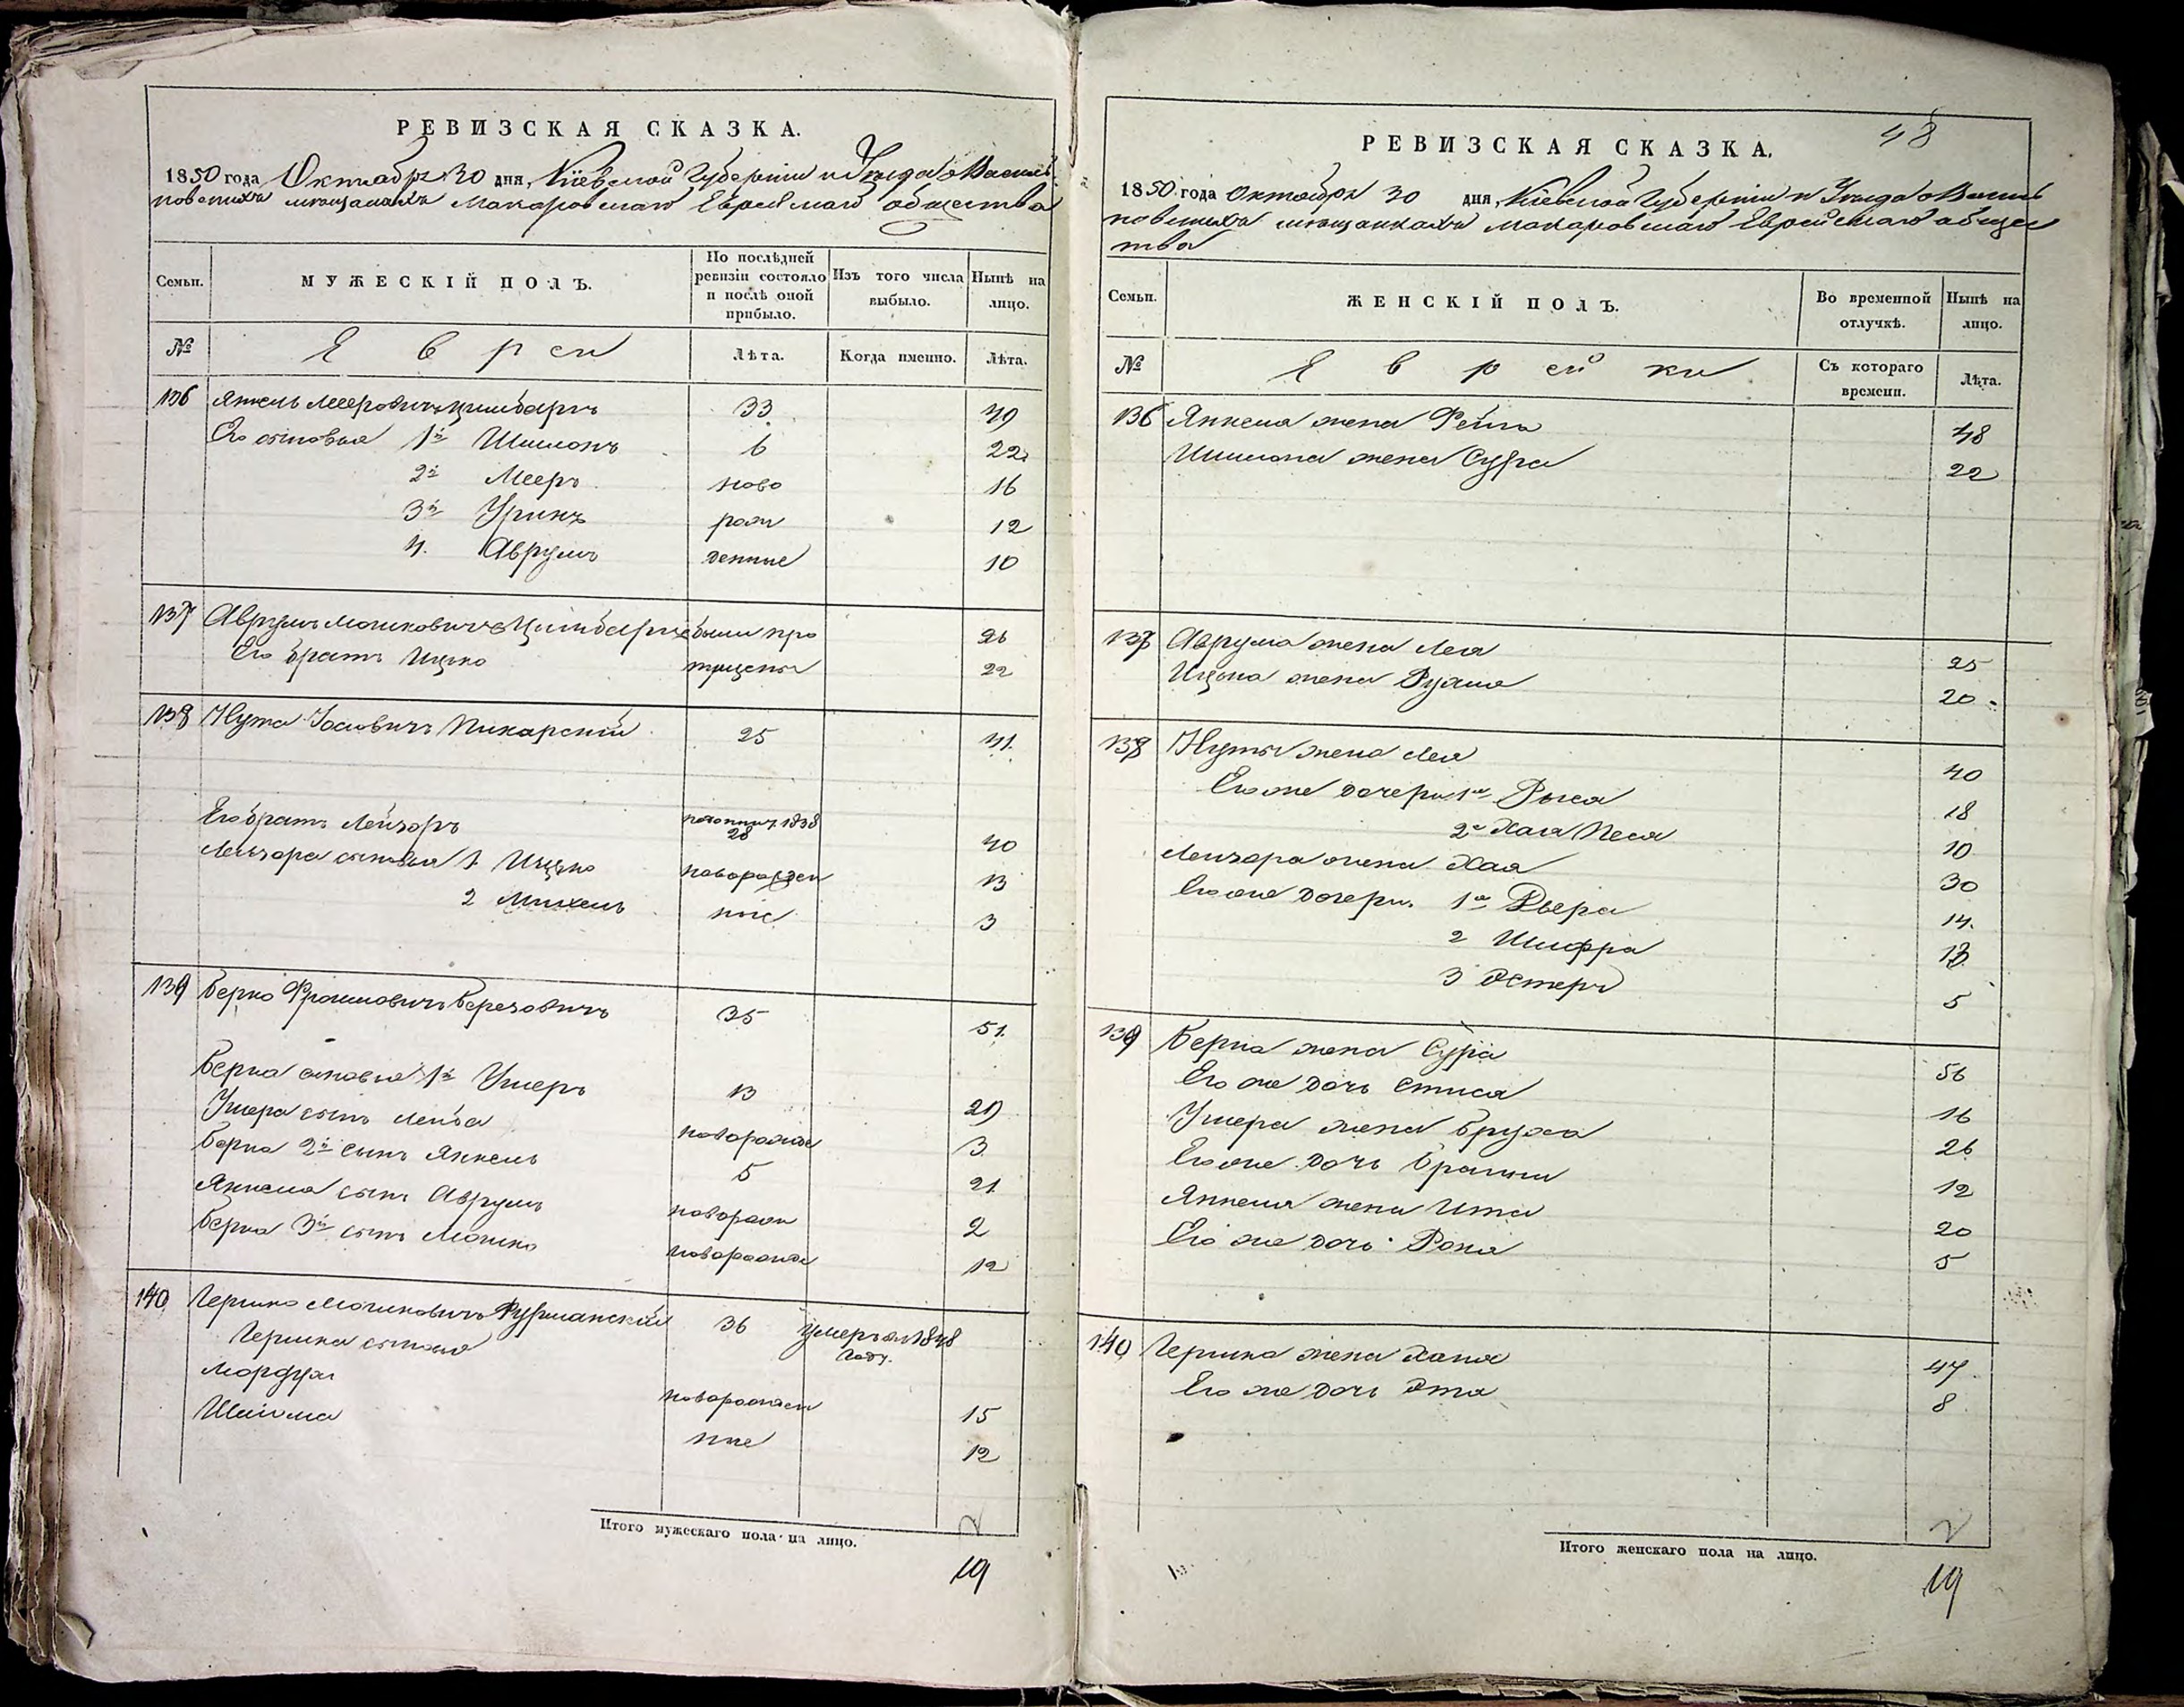 РЕВИЗСКАЯ СКАЗКА.
1850 года Октября 30 дня, Кіевской Губерніи и Уѣзда о Василь
ковскихъ мѣщанахъ Макаровскаго Еврейскаго общества
Семьи.
МУЖЕСКІЙ ПОЛЪ.
По послѣдней ревизіи состояло и послѣ оной прибыло.
Изъ того числа выбыло.
Нынѣ на лицо.
№
Евреи
Лѣта.
Когда именно.
Лѣта.
136 Янкель Мееровичъ Цимбаръ 33 49
Его сыновья 1й Шимонъ 6 22
2й Мееръ ново 16
3й Уринъ рож 12
4. Аврумъ денные 10
137 Аврумъ Мошковичъ Цимбаръ были про 26
Его братъ Ицко пущены 22
138 Нута Іосіовичъ Пикарскій 25 41.
Его братъ Лейзоръ 1838 28 40
Лейзора сыновья 1. Ицко новорожден 13
2 Михель ные 3
139 Берко Фроимовичъ Березовичъ 35 51.
Берка сыновья 1й Ушеръ 13 29
Ушера сынъ Лейба новорожде 3
Берка 2й сынъ Янкель 5 21
Янкеля сынъ Аврумъ новорож 2
Берка 3й сынъ Мошко новорожде 12
140 Гершко Мошковичъ Фурманскій 36 умеръ въ 1848 Году.
Гершка сыновья
Мордухъ новорожден 15
Шлиома ные 12
Итого мужескаго пола на лицо.
19
48
РЕВИЗСКАЯ СКАЗКА.
1850 года Октября 30 дня, Кіевской Губерніи и Уѣзда о Василь
ковскихъ мѣщанкахъ Макаровскаго Еврейскаго общес
тва
Семьи.
ЖЕНСКІЙ ПОЛЪ.
Во временной отлучкѣ.
Нынѣ на лицо.
№
Еврейки
Съ котораго времени.
Лѣта.
136 Янкеля жена Фейга 48
Шимона жена Сура 22
137 Аврума жена Лея 25
Ицька жена Рухля 20
138 Нуты жена Лея 40
Его же дочери 1я Рыся 18
2я Хая Песя 10
Лейзора жена Хая 30
Его же дочери 1я Двера 14.
2 Шифра 13
3 Эстеръ 5
139 Берка жена Сура 56
Его же дочь Стися 16
Ушера жена Бруха 26
Его же дочь Браны 12
Янкеля жена Ита 20
Его же дочь Рося 5
140 Гершка жена Хана 47
Его же дочь Эта 8
Итого женскаго пола на лицо.
19